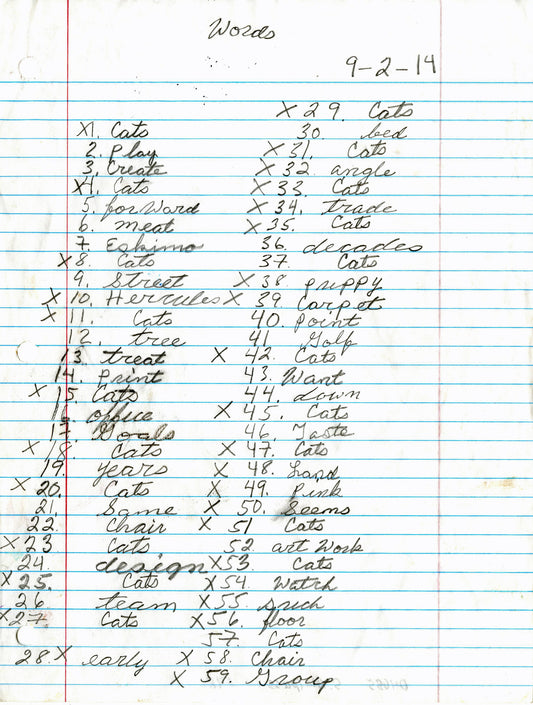 Words
9-2-14
X1. Cats
2. Play
3. Create
X4. Cats
5. forWard
6. meat
7. Eskimo
X8. Cats
9. Street
X 10. Hercules
X 11. Cats
12. tree
13. treat
14. print
X 15. Cats
16. office
17. Goals
X 18. Cats
19. years
X 20. Cats
21. Same
22. Chair
X 23 Cats
24. design
X 25. Cats
26 team
X 27. Cats
28. X early
X 29. Cats
30. bed
X 31. Cats
X 32 angle
X 33. Cats
X 34. trade
X 35. Cats
36. decades
37. Cats
X 38 puppy
X 39. Carpet
40. Point
41 Golf
X 42. Cats
43. Want
44. down
X 45. Cats
46. Taste
X 47. Cats
X 48. Land
X 49. Pink
X 50. Seems
X 51 Cats
52. art Work
X53. Cats
X54. Watch
X 55.
X 56. floor
57. Cats
X 58. Chair
X 59. Group